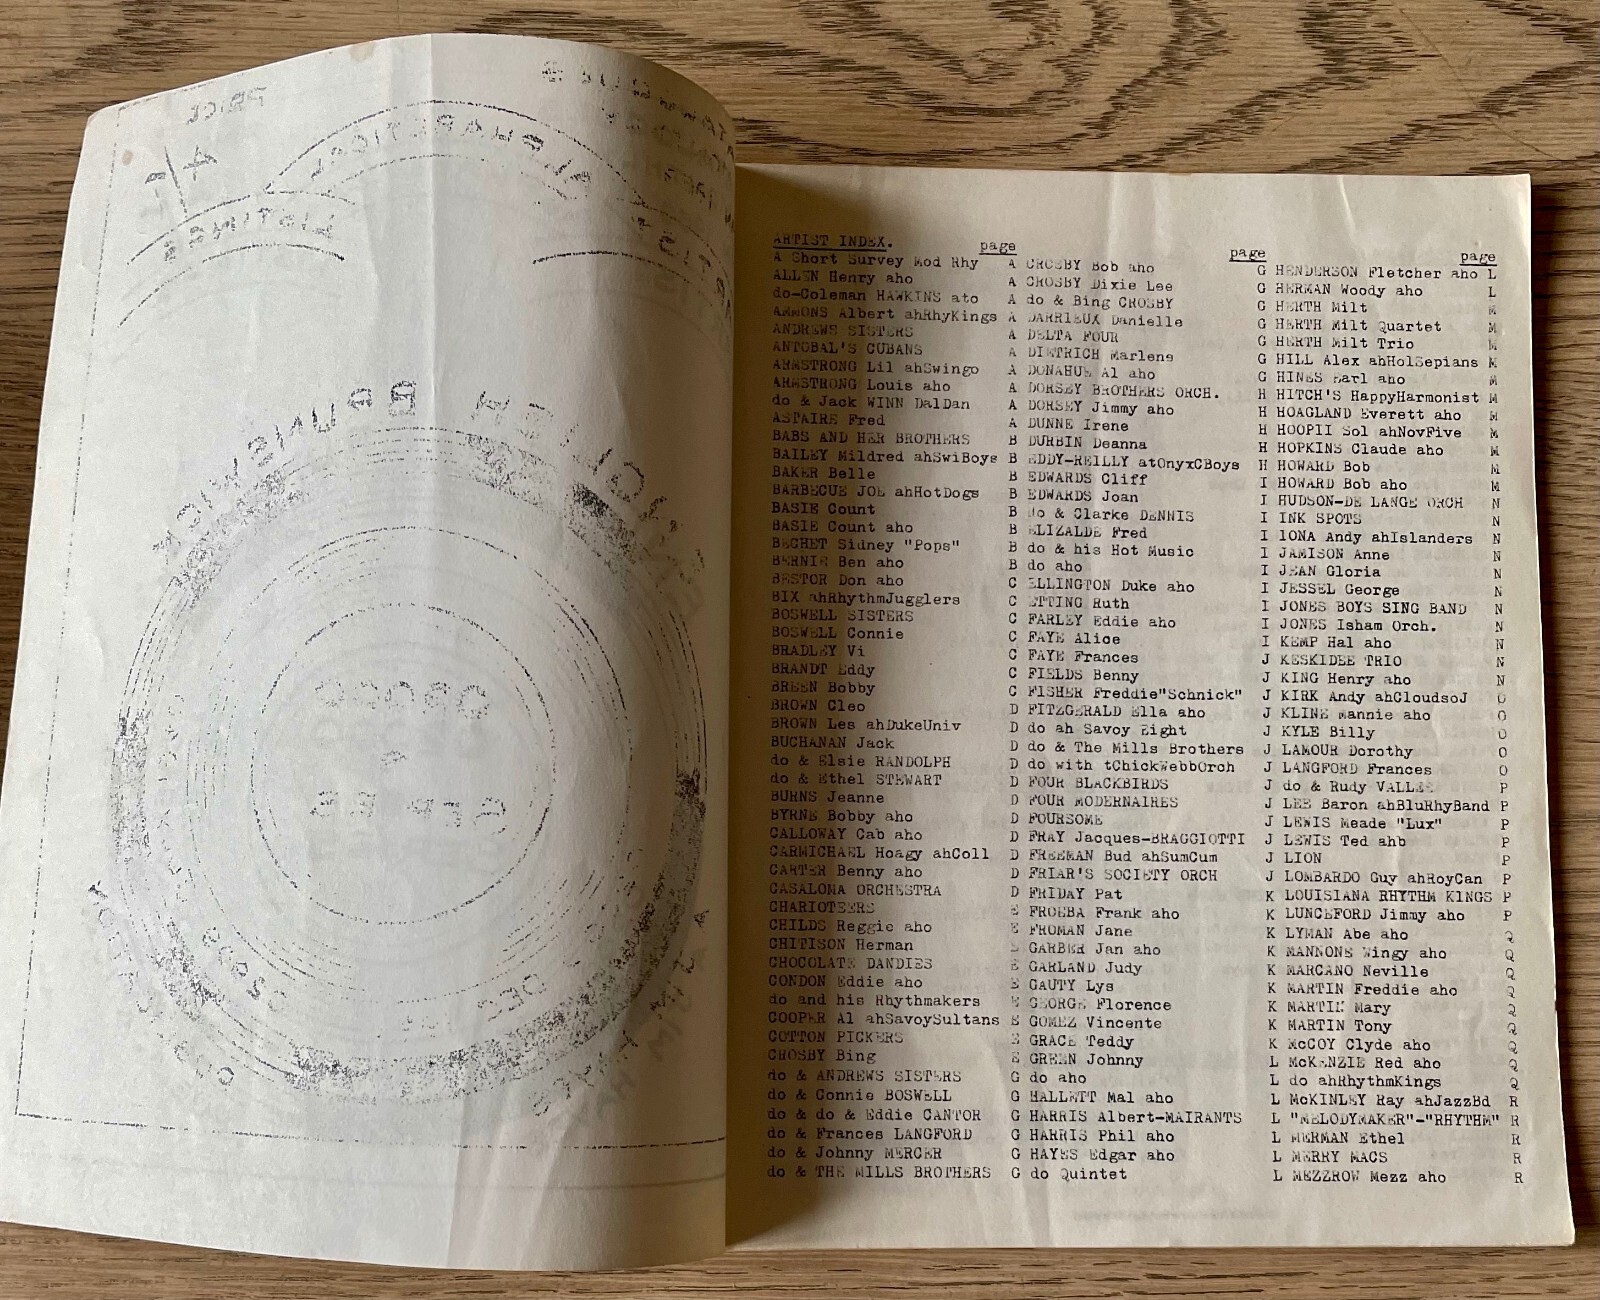 ARTIST INDEX. page
A Short Survey Mod Rhy A
ALLEN Henry aho A
do-Coleman HAWKINS ato A
AMMONS Albert ahRhyKings A
ANDREWS SISTERS A
ANTOBAL'S CUBANS A
ARMSTRONG Lil ahSwingo A
ARMSTRONG Louis aho A
do & Jack WINN DalDan A
ASTAIRE Fred A
BABS AND HER BROTHERS B
BAILEY Mildred ahSwiBoys B
BAKER Belle B
BARBECUE JOE ahHotDogs B
BASIE Count B
BASIE Count aho B
BECHET Sidney "Pops" B
BERNIE Ben aho B
BESTOR Don aho C
BIX ahRhythmJugglers C
BOSWELL SISTERS C
BOSWELL Connie C
BRADLEY Vi C
BRANDT Eddy C
BREEN Bobby C
BROWN Cleo D
BROWN Les ahDukeUniv D
BUCHANAN Jack D
do & Elsie RANDOLPH D
do & Ethel STEWART D
BURNS Jeanne D
BYRNE Bobby aho D
CALLOWAY Cab aho D
CARMICHAEL Hoagy ahColl D
CARTER Benny aho D
CASALOMA ORCHESTRA D
CHARIOTEERS E
CHILDS Reggie aho E
CHITISON Herman E
CHOCOLATE DANDIES E
CONDON Eddie aho E
do and his Rhythmakers E
COOPER Al ahSavoySultans E
COTTON PICKERS E
CROSBY Bing E
do & ANDREWS SISTERS G
do & Connie BOSWELL G
do & do & Eddie CANTOR G
do & Frances LANGFORD G
do & Johnny MERCER G
do & THE MILLS BROTHERS G
page
CROSBY Bob aho G
CROSBY Dixie Lee G
do & Bing CROSBY G
DARRIEUX Danielle G
DELTA FOUR G
DIETRICH Marlene G
DONAHUE Al aho G
DORSEY BROTHERS ORCH. H
DORSEY Jimmy aho H
DUNNE Irene H
DURBIN Deanna H
EDDY-REILLY atOnyxCBoys H
EDWARDS Cliff I
EDWARDS Joan I
do & Clarke DENNIS I
ELIZALDE Fred I
do & his Hot Music I
do aho I
ELLINGTON Duke aho I
ETTING Ruth I
FARLEY Eddie aho I
FAYE Alice I
FAYE Frances J
FIELDS Benny J
FISHER Freddie"Schnick" J
FITZGERALD Ella aho J
do ah Savoy Eight J
do & The Mills Brothers J
do with tChickWebbOrch J
FOUR BLACKBIRDS J
FOUR MODERNAIRES J
FOURSOME J
FRAY Jacques-BRAGGIOTTI J
FREEMAN Bud ahSumCum J
FRIAR'S SOCIETY ORCH J
FRIDAY Pat K
FROEBA Frank aho K
FROMAN Jane K
GARBER Jan aho K
GARLAND Judy K
GAUTY Lys K
GEORGE Florence K
GOMEZ Vincente K
GRACE Teddy K
GREEN Johnny L
do aho L
HALLETT Mal aho L
HARRIS Albert-MAIRANTS L
HARRIS Phil aho L
HAYES Edgar aho L
do Quintet L
page
HENDERSON Fletcher aho L
HERMAN Woody aho L
HERTH Milt M
HERTH Milt Quartet M
HERTH Milt Trio M
HILL Alex ahHolSepians M
HINES Earl aho M
HITCH'S HappyHarmonist M
HOAGLAND Everett aho M
HOOPII Sol ahNovFive M
HOPKINS Claude aho M
HOWARD Bob M
HOWARD Bob aho M
HUDSON-DE LANGE ORCH N
INK SPOTS N
IONA Andy ahIslanders N
JAMISON Anne N
JEAN Gloria N
JESSEL George N
JONES BOYS SING BAND N
JONES Isham Orch. N
KEMP Hal aho N
KESKIDEE TRIO N
KING Henry aho N
KIRK Andy ahCloudsoJ O
KLINE Mannie aho O
KYLE Billy O
LAMOUR Dorothy O
LANGFORD Frances O
do & Rudy VALLEE P
LEE Baron ahBluRhyBand P
LEWIS Meade "Lux" P
LEWIS Ted ahb P
LION P
LOMBARDO Guy ahRoyCan P
LOUISIANA RHYTHM KINGS P
LUNCEFORD Jimmy aho P
LYMAN Abe aho Q
MANNONE Wingy aho Q
MARCANO Neville Q
MARTIN Freddie aho Q
MARTIN Mary Q
MARTIN Tony Q
McCOY Clyde aho Q
McKENZIE Red aho Q
do ahRhythmKings Q
McKINLEY Ray ahJazzBd R
"MELODYMAKER"-"RHYTHM" R
MERMAN Ethel R
MERRY MACS R
MEZZROW Mezz aho R